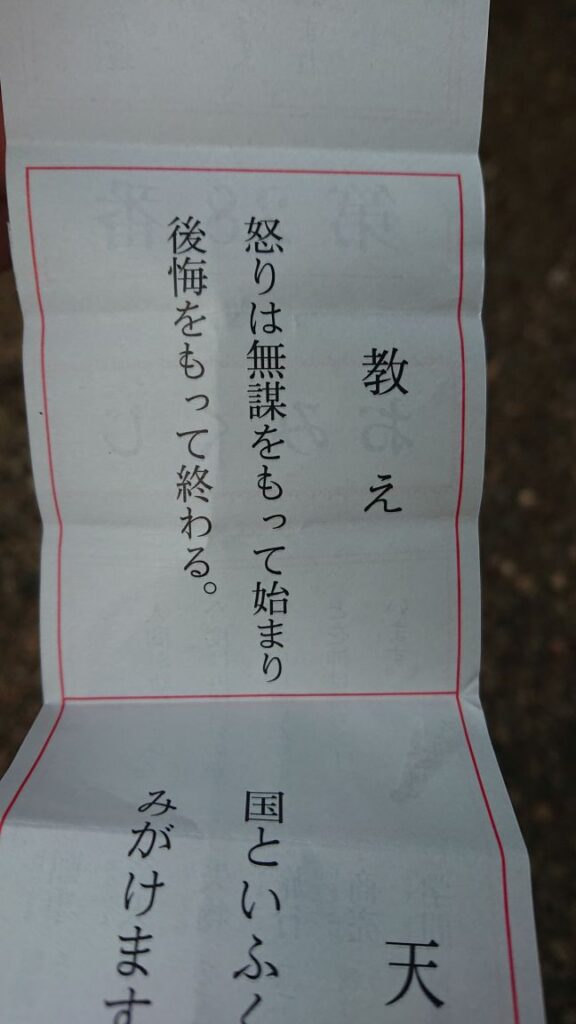 教え
怒りは無謀をもって始まり
後悔をもって終わる。
天
国といふく
みがけます